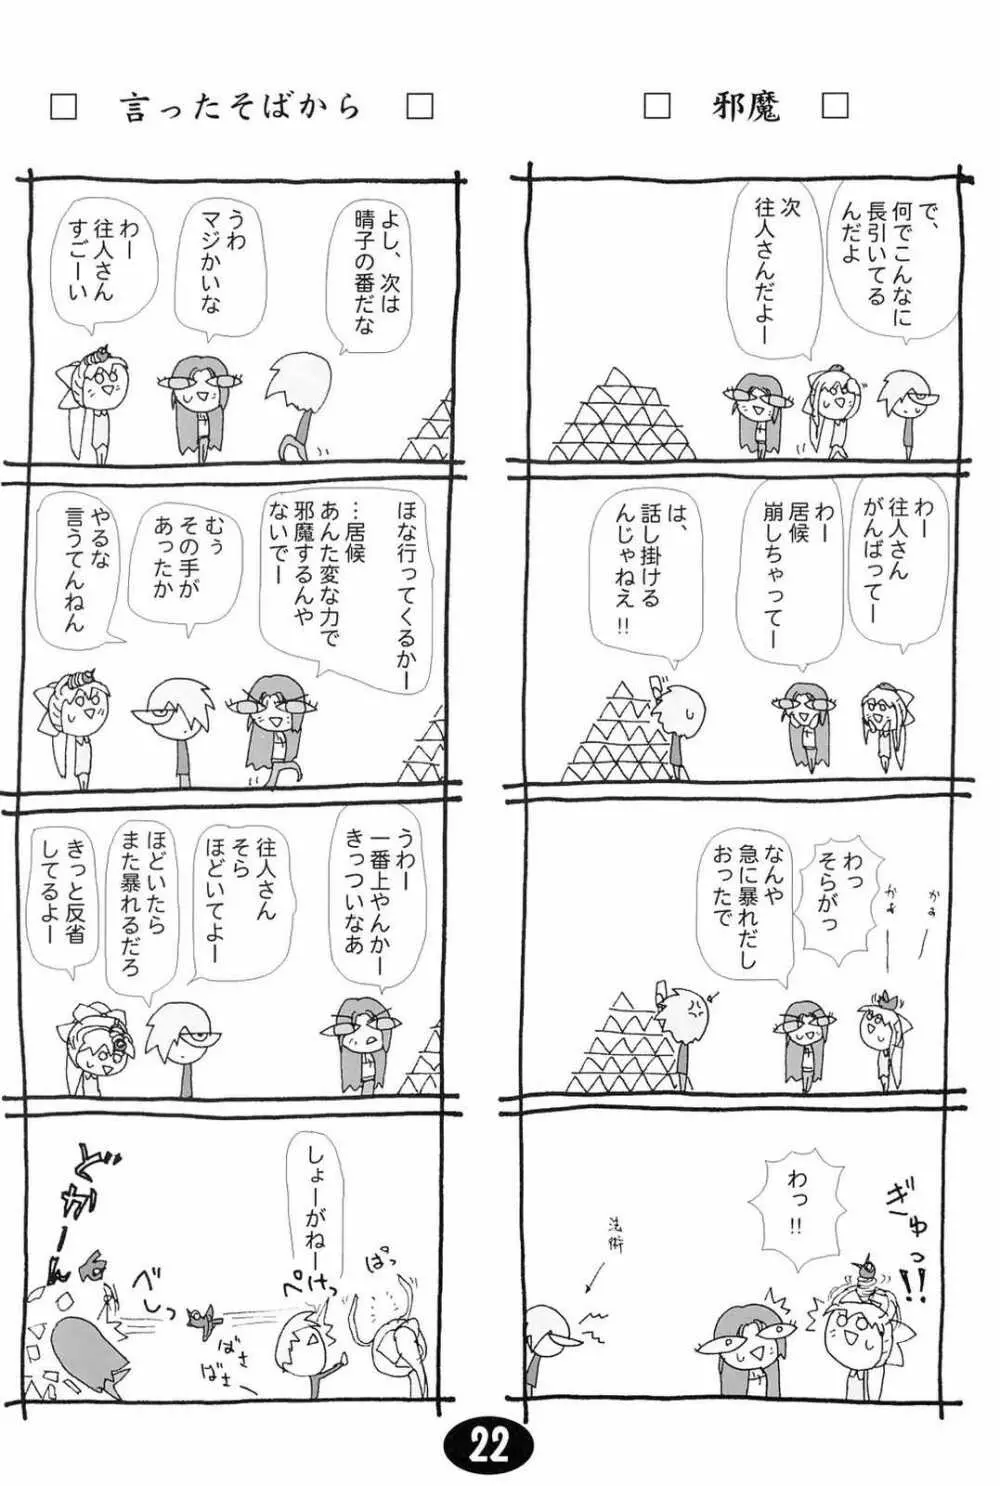 □ 邪魔 □
で、
何でこんなに
長引いてる
んだよ
次
往人さんだよー
わー
往人さん
がんばってー
わー
居候
崩しちゃってー
は、
話し掛ける
んじゃねえ!!
かぁ
かぁ
わっ
そらがっ
なんや
急に暴れだし
おったで
ぎゅっ!!
わっ!!
法術
□ 言ったそばから □
よし、次は
晴子の番だな
うわ
マジかいな
わー
往人さん
すごーい
ほな行ってくるかー
…居候
あんた変な力で
邪魔するんや
ないでー
むぅ
その手が
あったか
やるな
言うてんねん
うわー
一番上やんかー
きっついなあ
往人さん
そら
ほどいてよー
ほどいたら
また暴れるだろ
きっと反省
してるよー
しょーがねー
ぱっ
ぺけっ
ばさ
ばさ
べしっ
どかーん
22